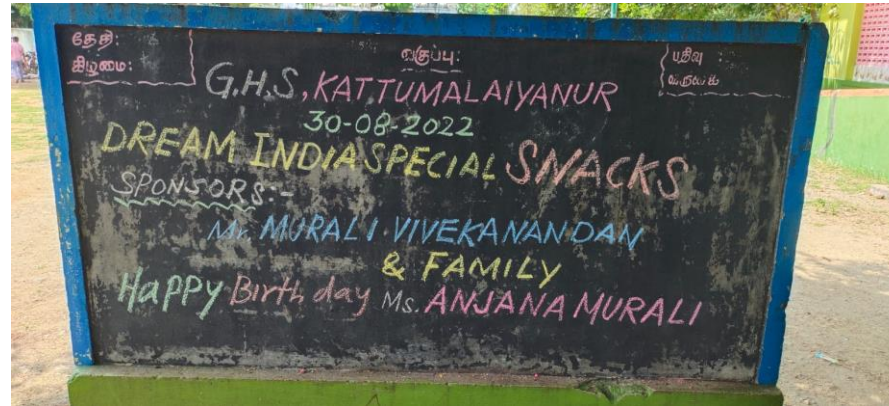 தேதி: வகுப்பு: பதிவு :
கிழமை: வருகை
G.H.S, KATTUMALAIYANUR
30-08-2022
DREAM INDIA SPECIAL SNACKS
SPONSORS:-
Mr. MURALI VIVEKANANDAN
& FAMILY
HaPPy Birth day Ms. ANJANA MURALI